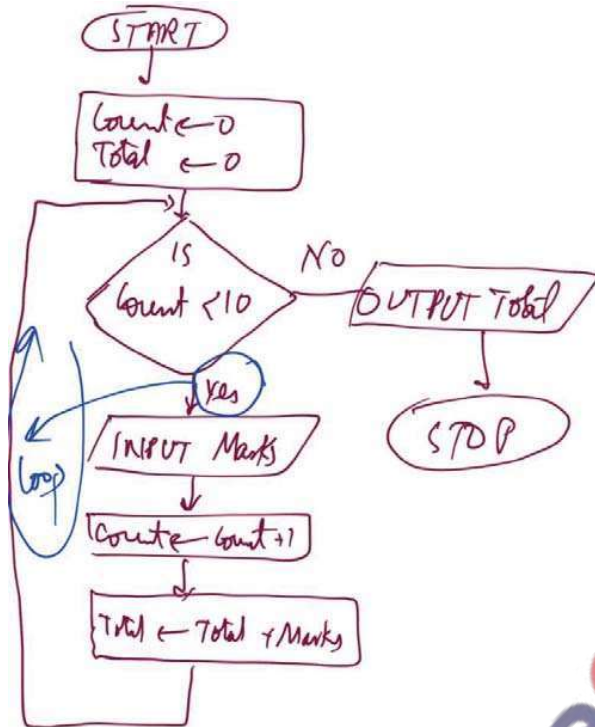 START
Count ← 0
Total ← 0
IS
Count < 10
NO
OUTPUT Total
STOP
Yes
Loop
INPUT Marks
Count ← Count + 1
Total ← Total + Marks